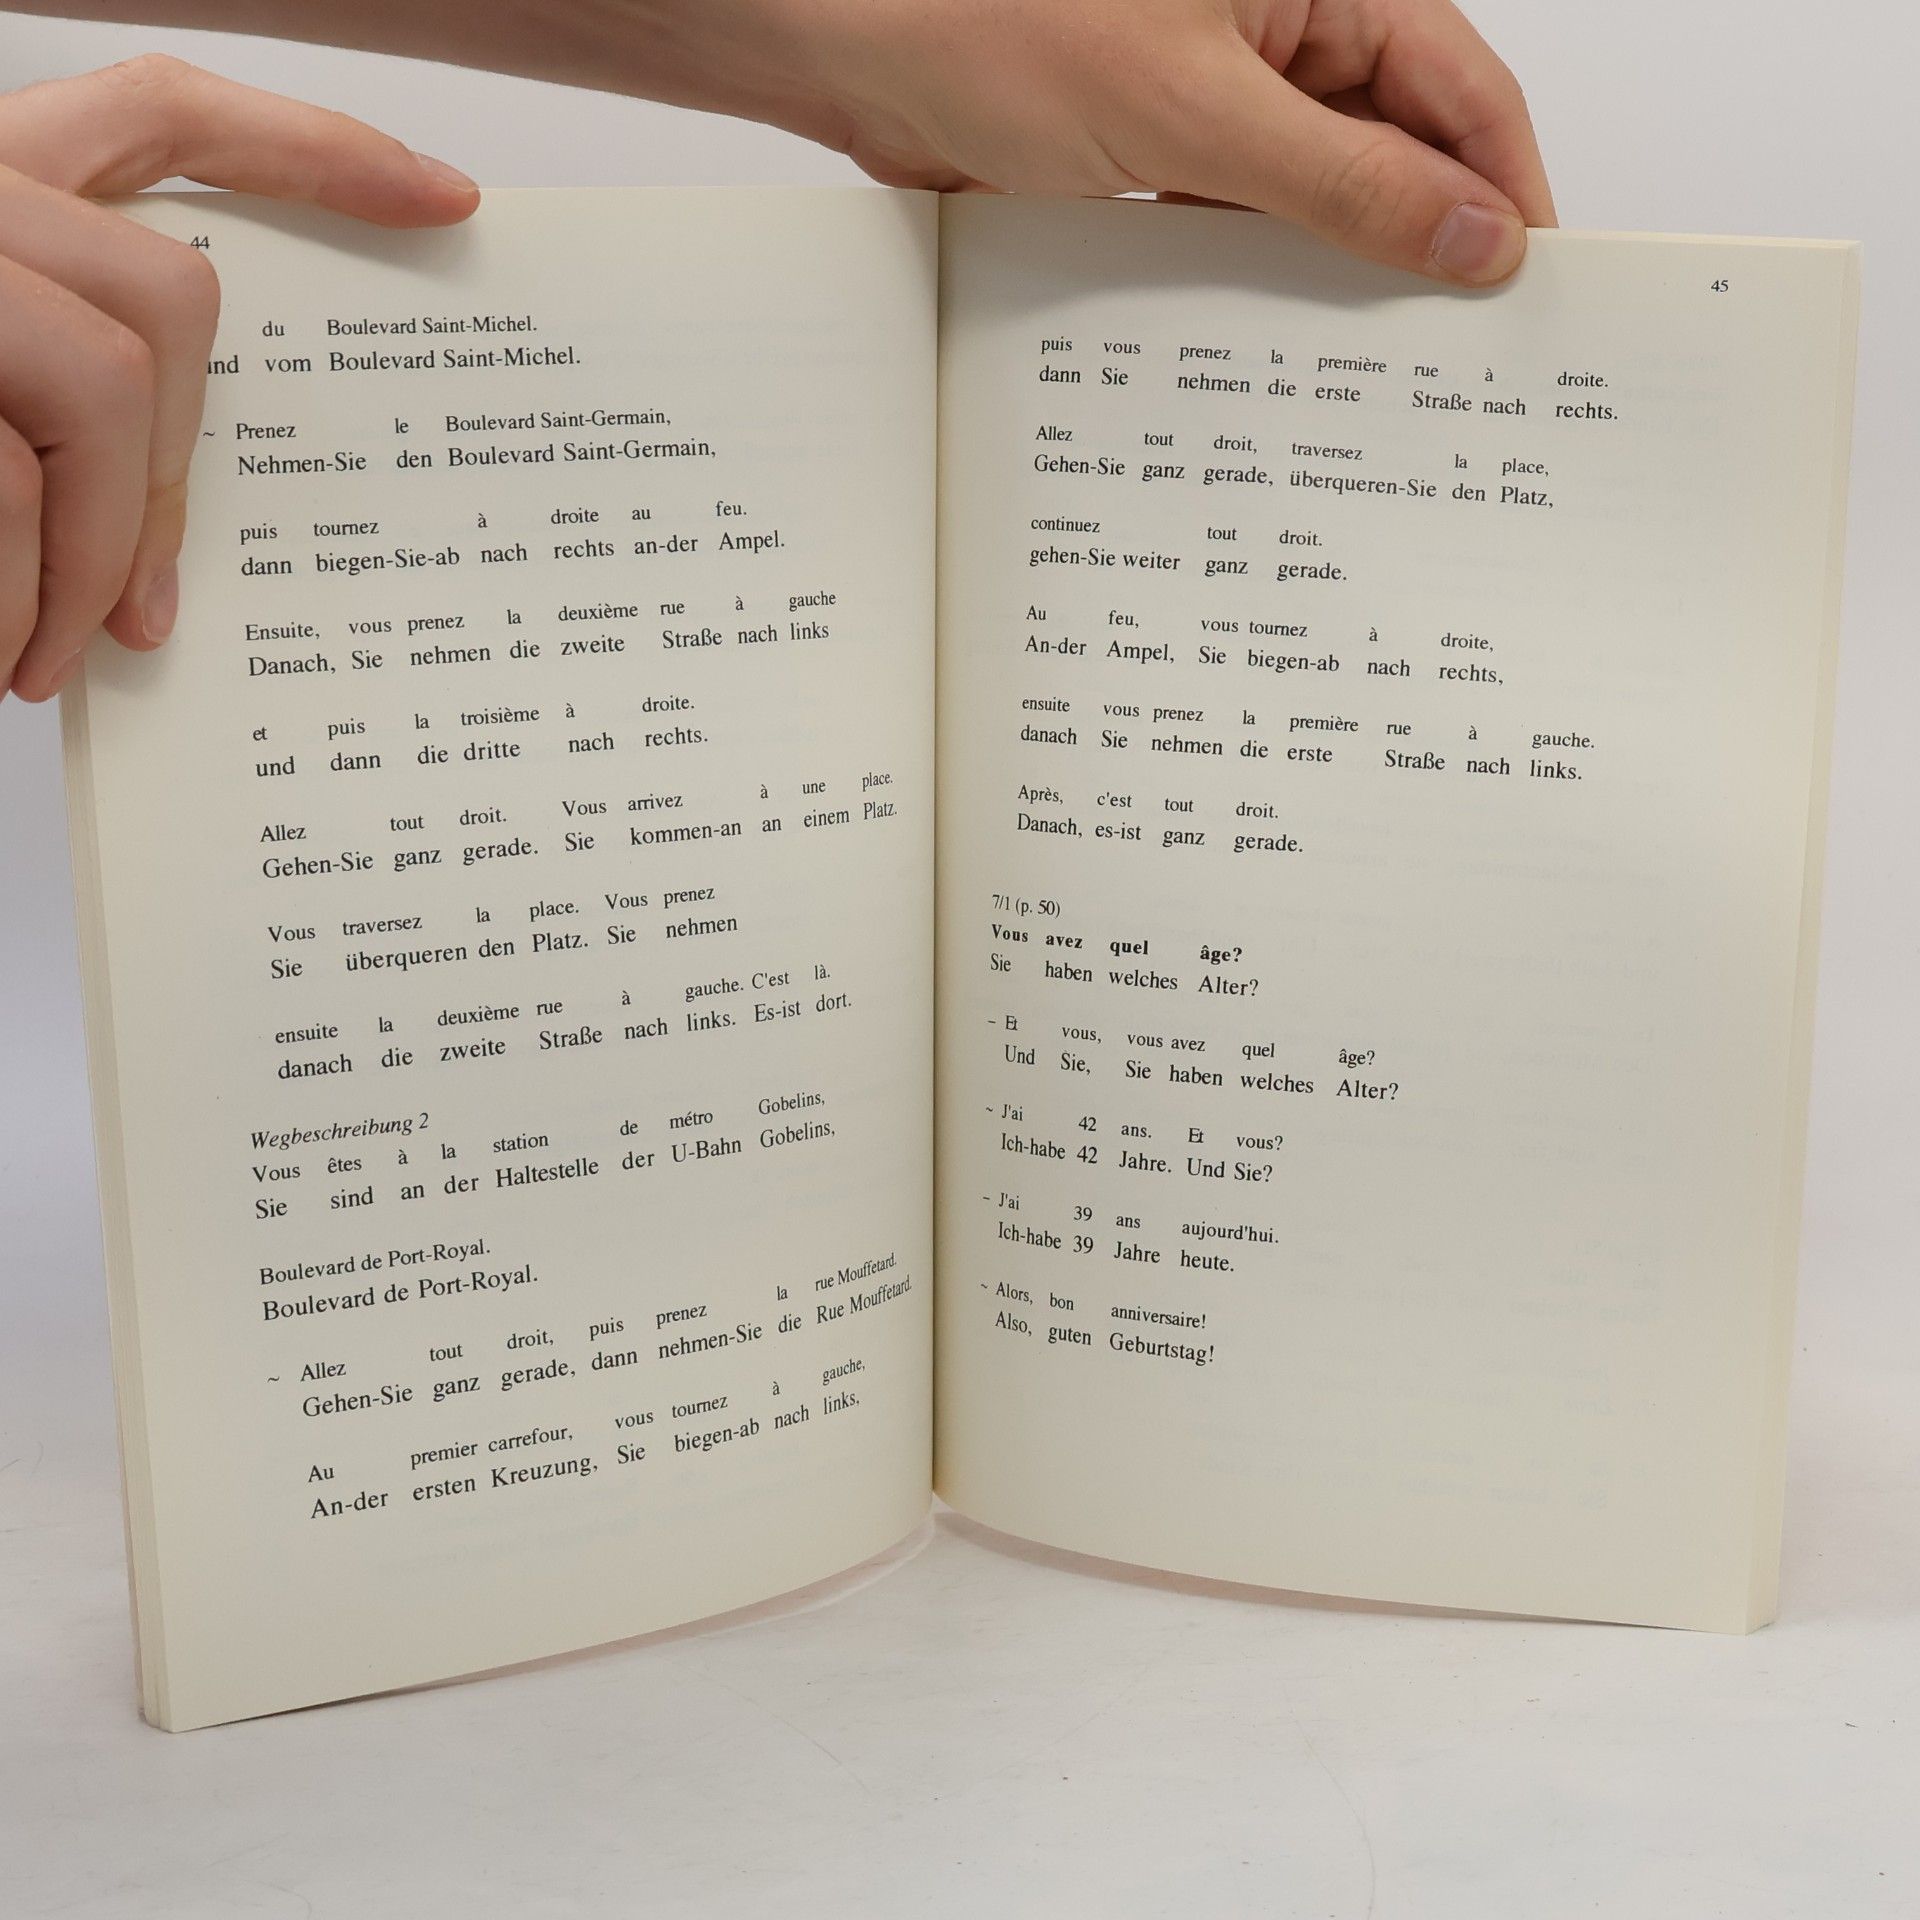 44
du Boulevard Saint-Michel.
vom Boulevard Saint-Michel.
~ Prenez le Boulevard Saint-Germain,
Nehmen-Sie den Boulevard Saint-Germain,
puis tournez à droite au feu.
dann biegen-Sie-ab nach rechts an-der Ampel.
Ensuite, vous prenez la deuxième rue à gauche
Danach, Sie nehmen die zweite Straße nach links
et puis la troisième à droite.
und dann die dritte nach rechts.
Allez tout droit. Vous arrivez à une place.
Gehen-Sie ganz gerade. Sie kommen-an an einem Platz.
Vous traversez la place. Vous prenez
Sie überqueren den Platz. Sie nehmen
ensuite la deuxième rue à gauche. C'est là.
danach die zweite Straße nach links. Es-ist dort.
Wegbeschreibung 2
Vous êtes à la station de métro Gobelins,
Sie sind an der Haltestelle der U-Bahn Gobelins,
Boulevard de Port-Royal.
Boulevard de Port-Royal.
~ Allez tout droit, puis prenez la rue Mouffetard.
Gehen-Sie ganz gerade, dann nehmen-Sie die Rue Mouffetard.
Au premier carrefour, vous tournez à gauche,
An-der ersten Kreuzung, Sie biegen-ab nach links,
45
puis vous prenez la première rue à droite.
dann Sie nehmen die erste Straße nach rechts.
Allez tout droit, traversez la place,
Gehen-Sie ganz gerade, überqueren-Sie den Platz,
continuez tout droit.
gehen-Sie weiter ganz gerade.
Au feu, vous tournez à droite,
An-der Ampel, Sie biegen-ab nach rechts,
ensuite vous prenez la première rue à gauche.
danach Sie nehmen die erste Straße nach links.
Après, c'est tout droit.
Danach, es-ist ganz gerade.
7/1 (p. 50)
Vous avez quel âge?
Sie haben welches Alter?
– Et vous, vous avez quel âge?
Und Sie, Sie haben welches Alter?
~ J'ai 42 ans. Et vous?
Ich-habe 42 Jahre. Und Sie?
– J'ai 39 ans aujourd'hui.
Ich-habe 39 Jahre heute.
~ Alors, bon anniversaire!
Also, guten Geburtstag!